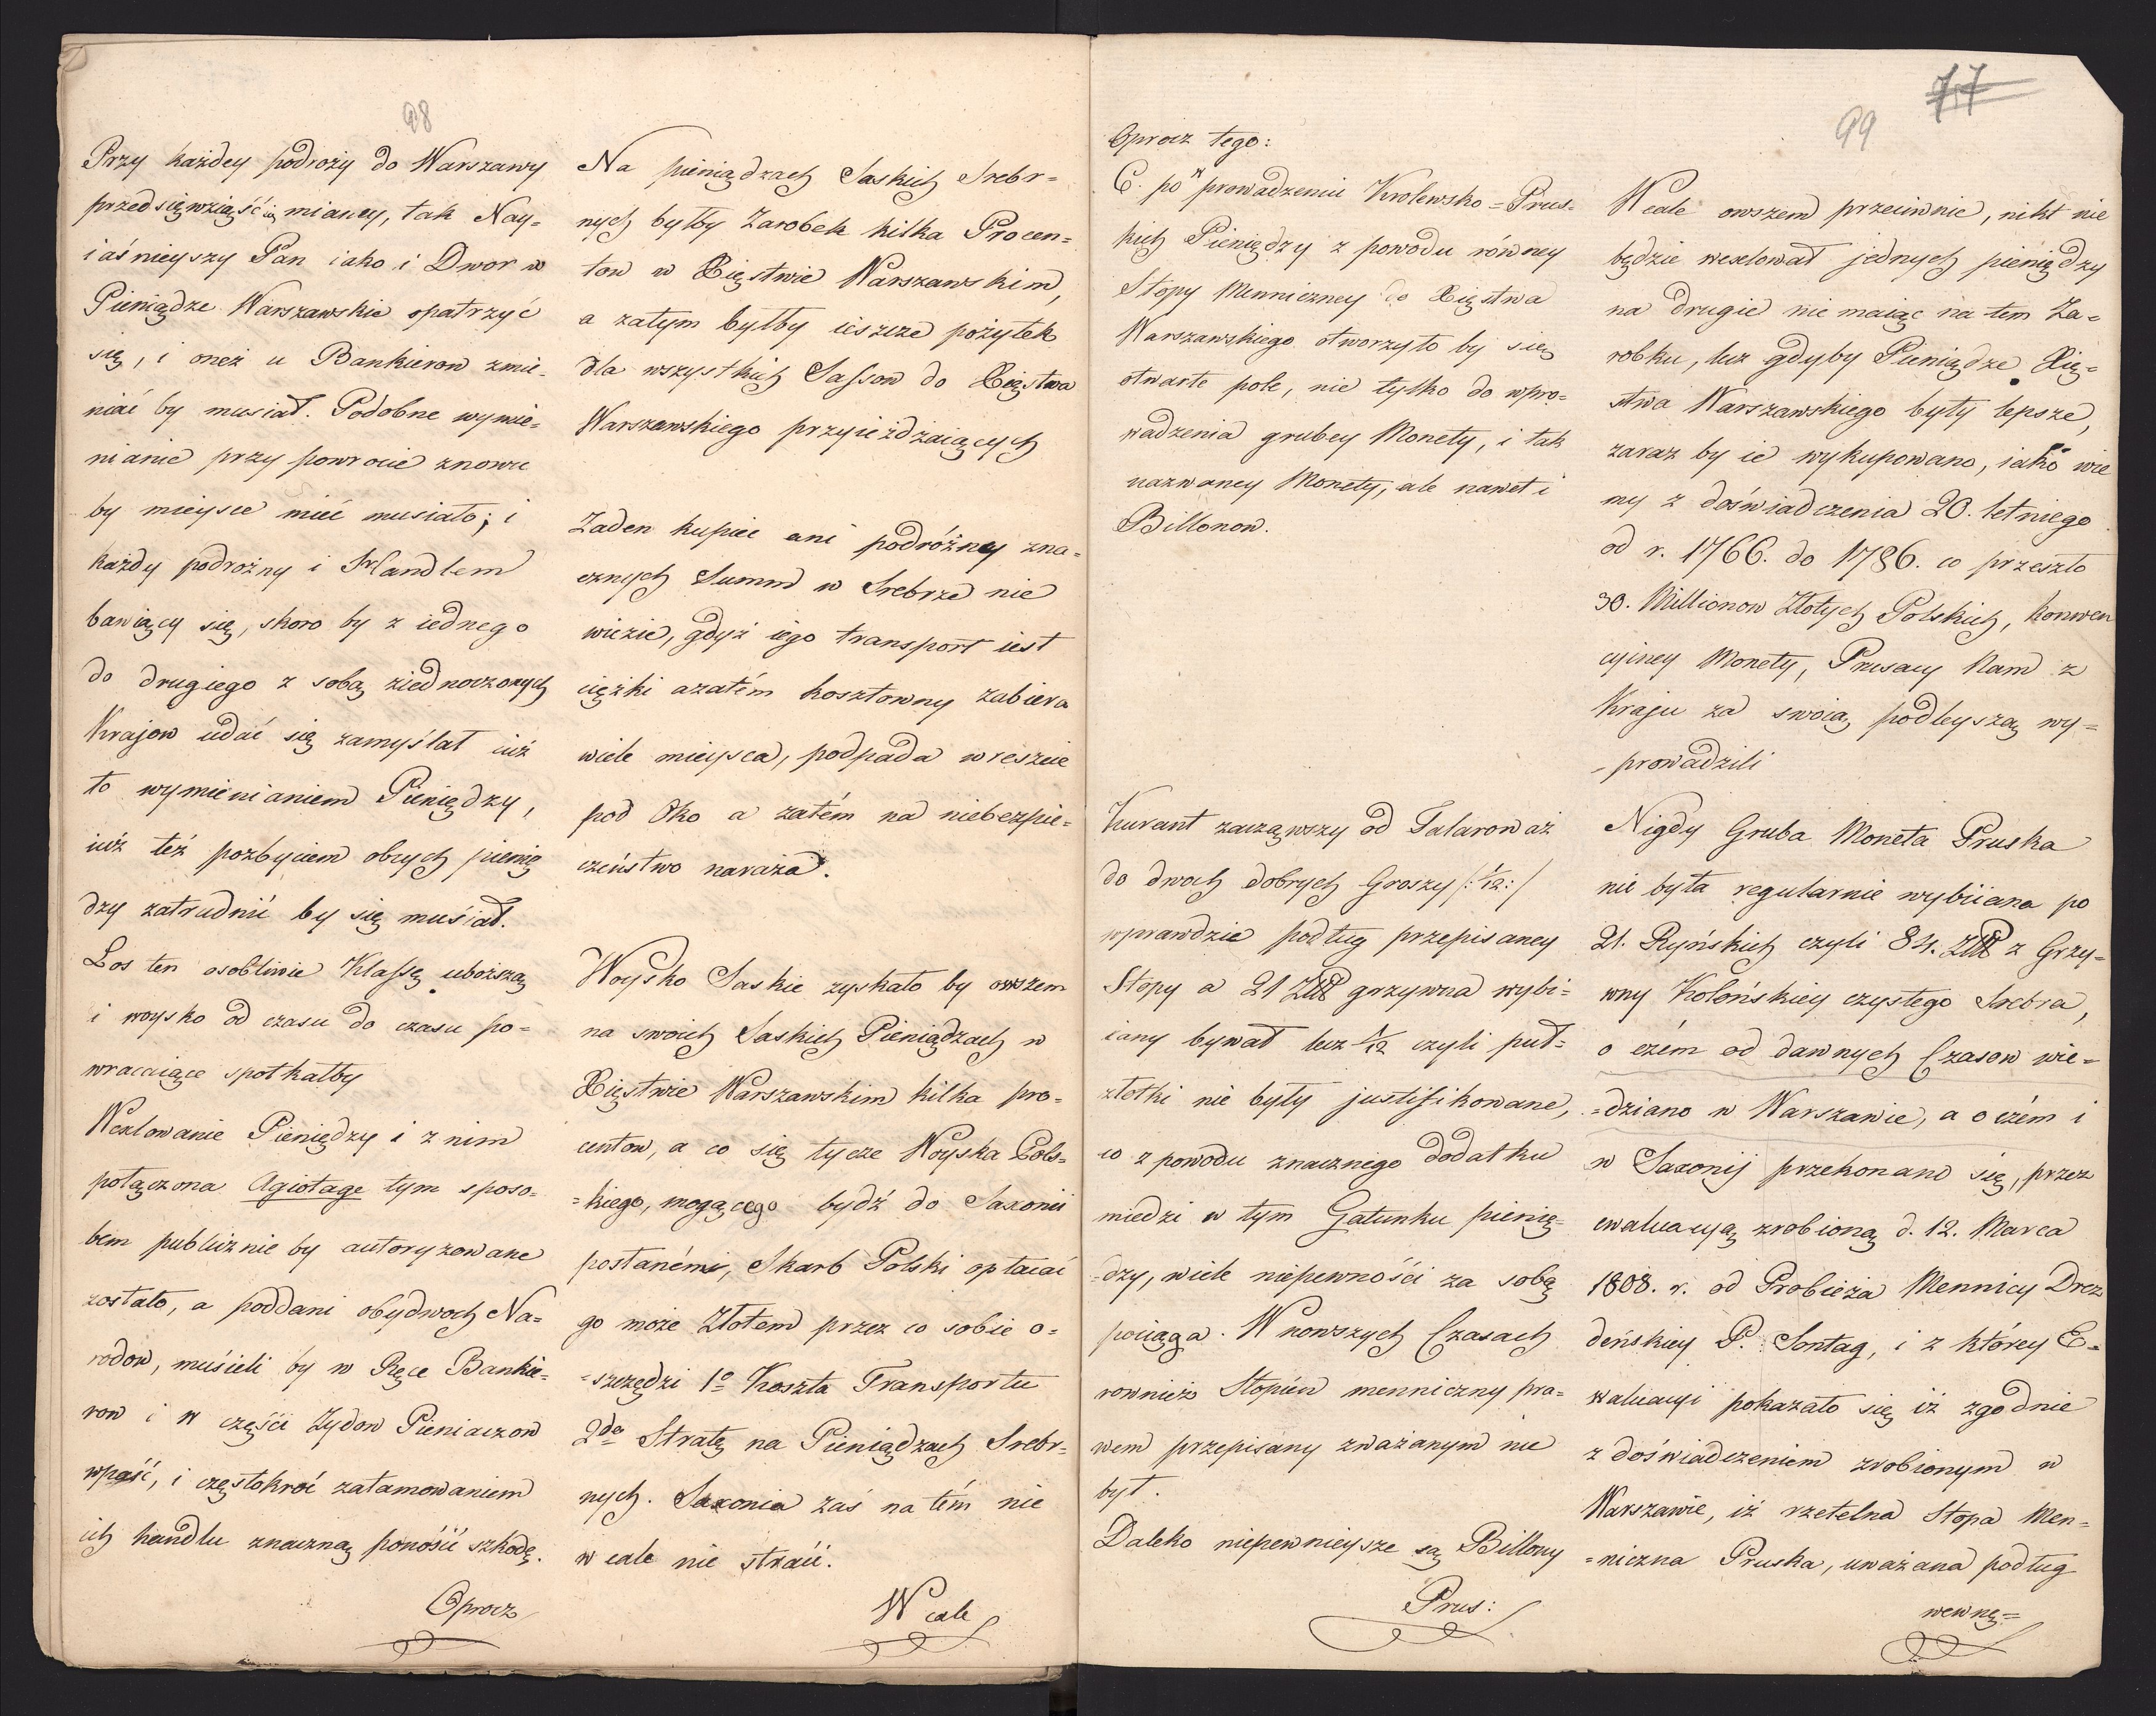 98
Przy każdey podroży do Warszawy
przedsięwziąść się mianey, tak Nay=
iaśnieyszy Pan iako i Dwor w
Pieniądze Warszawskie opatrzyć
się, i oneż u Bankierow zmie=
niać by musiał. Podobne wymie=
nianie przy powrocie znowu
by mieysce mieć musiało; i
każdy podrożny i Handlem
bawiący się, skoro by z iednego
do drugiego z sobą ziednoczonych
Krajow udać się zamyślał iuż
to wymienianiem Pieniędzy,
iuż też pozbyciem obcych pienię
dzy zatrudnić by się musiał.
Los ten osobliwie Klassę uboższą
i woysko od czasu do czasu po=
wracaiące spotkałby
Wexlowanie Pieniędzy i z nim
połączona Agiotage tym sposo=
bem publicznie by autoryzowane
zostało, a poddani obydwoch Na=
rodow, musieli by w Ręce Bankie=
row i w części Żydow Pieniaczow
wpaść, i częstokroć zatamowaniem
ich handlu znaczną ponosić szkodę.
Oprocz
Na pieniądzach Saskich Srebr=
nych byłby Zarobek kilka Procen=
tow w Xięstwie Warszawskim,
a zatym byłby ieszcze pożytek
dla wszystkich Sassow do Xięstwa
Warszawskiego przyieżdżaiących
Żaden kupiec ani podróżny zna=
cznych Summ w Srebrze nie
wiezie, gdyż iego transport iest
ciężki azatém kosztowny zabiera
wiele mieysca, podpada wreszcie
pod Oko a zatém na niebezpie=
czeństwo naraża.
Woysko Saskie zyskało by owszem
na swoich Saskich Pieniądzach w
Xięstwie Warszawskim kilka pro=
centow, a co się tycze Woyska Pols=
=kiego, mogącego bydź do Saxonii
posłanémi, Skarb Polski opłacać
go może Złotem przez co sobie o=
=szczędzi 1o Koszta Transportu
2do Stratę na Pieniądzach Srebr=
nych. Saxonia zaś na tém nie
w cale nie straci.
W cale
77
99
Oprocz tego:
C. po wprowadzeniu Krolewsko=Prus=
kich Pieniędzy z powodu równey
Stopy Menniczney do Xięstwa
Warszawskiego otworzyło by się
otwarte pole, nie tylko do wpro=
wadzenia grubey Monety, i tak
nazwaney Monety, ale nawet i
Billonow.
Kurant zacząwszy od Talarow aż
do dwoch dobrych Groszy /: 1/12 :/
wprawdzie podług przepisaney
Stopy a 21 grzywna wybi=
iany bywał lecz 1/12 czyli puł=
złotki nie były justifikowane,
co z powodu znacznego dodatku
miedzi w tym Gatunku pienię=
=dzy, wiele niepewności za sobą
pociąga. W nowszych Czasach
rownież Stopień menniczny pra=
wem przepisany zważanym nie
był.
Daleko niepewnieysze są Billony
Prus:
W cale owszem przeciwnie, nikt nie
będzie wexlował jednych pieniędzy
na drugie nie maiąc na tem Za=
robku, lecz gdyby Pieniądze Xię=
stwa Warszawskiego były lepsze,
zaraz by ie wykupowano, iako wie
my z doświadczenia 20. letniego
od r. 1766. do 1786. co przeszło
30. Millionow Złotych Polskich, konwen
cyiney Monety, Prusacy Nam z
Kraju za swoią podleyszą wy=
-prowadzili
Nigdy Gruba Moneta Pruska
nie była regularnie wybiiana po
21. Ryńskich czyli 84. z Grzy=
wny Kolońskiey czystego Srebra,
o czém od dawnych Czasow wie=
=dziano w Warszawie, a o czém i
w Saxonij przekonano się, przez
ewaluacyą zrobioną d. 12. Marca
1808. r. od Probierża Mennicy Drez
deńskiey P. Sontag, i z którey E=
waluacyi pokazało się iż zgodnie
z doświadczeniem zrobionym w
Warszawie, iż rzetelna Stopa Men=
=niczna Pruska, uważana podług
wewnę=